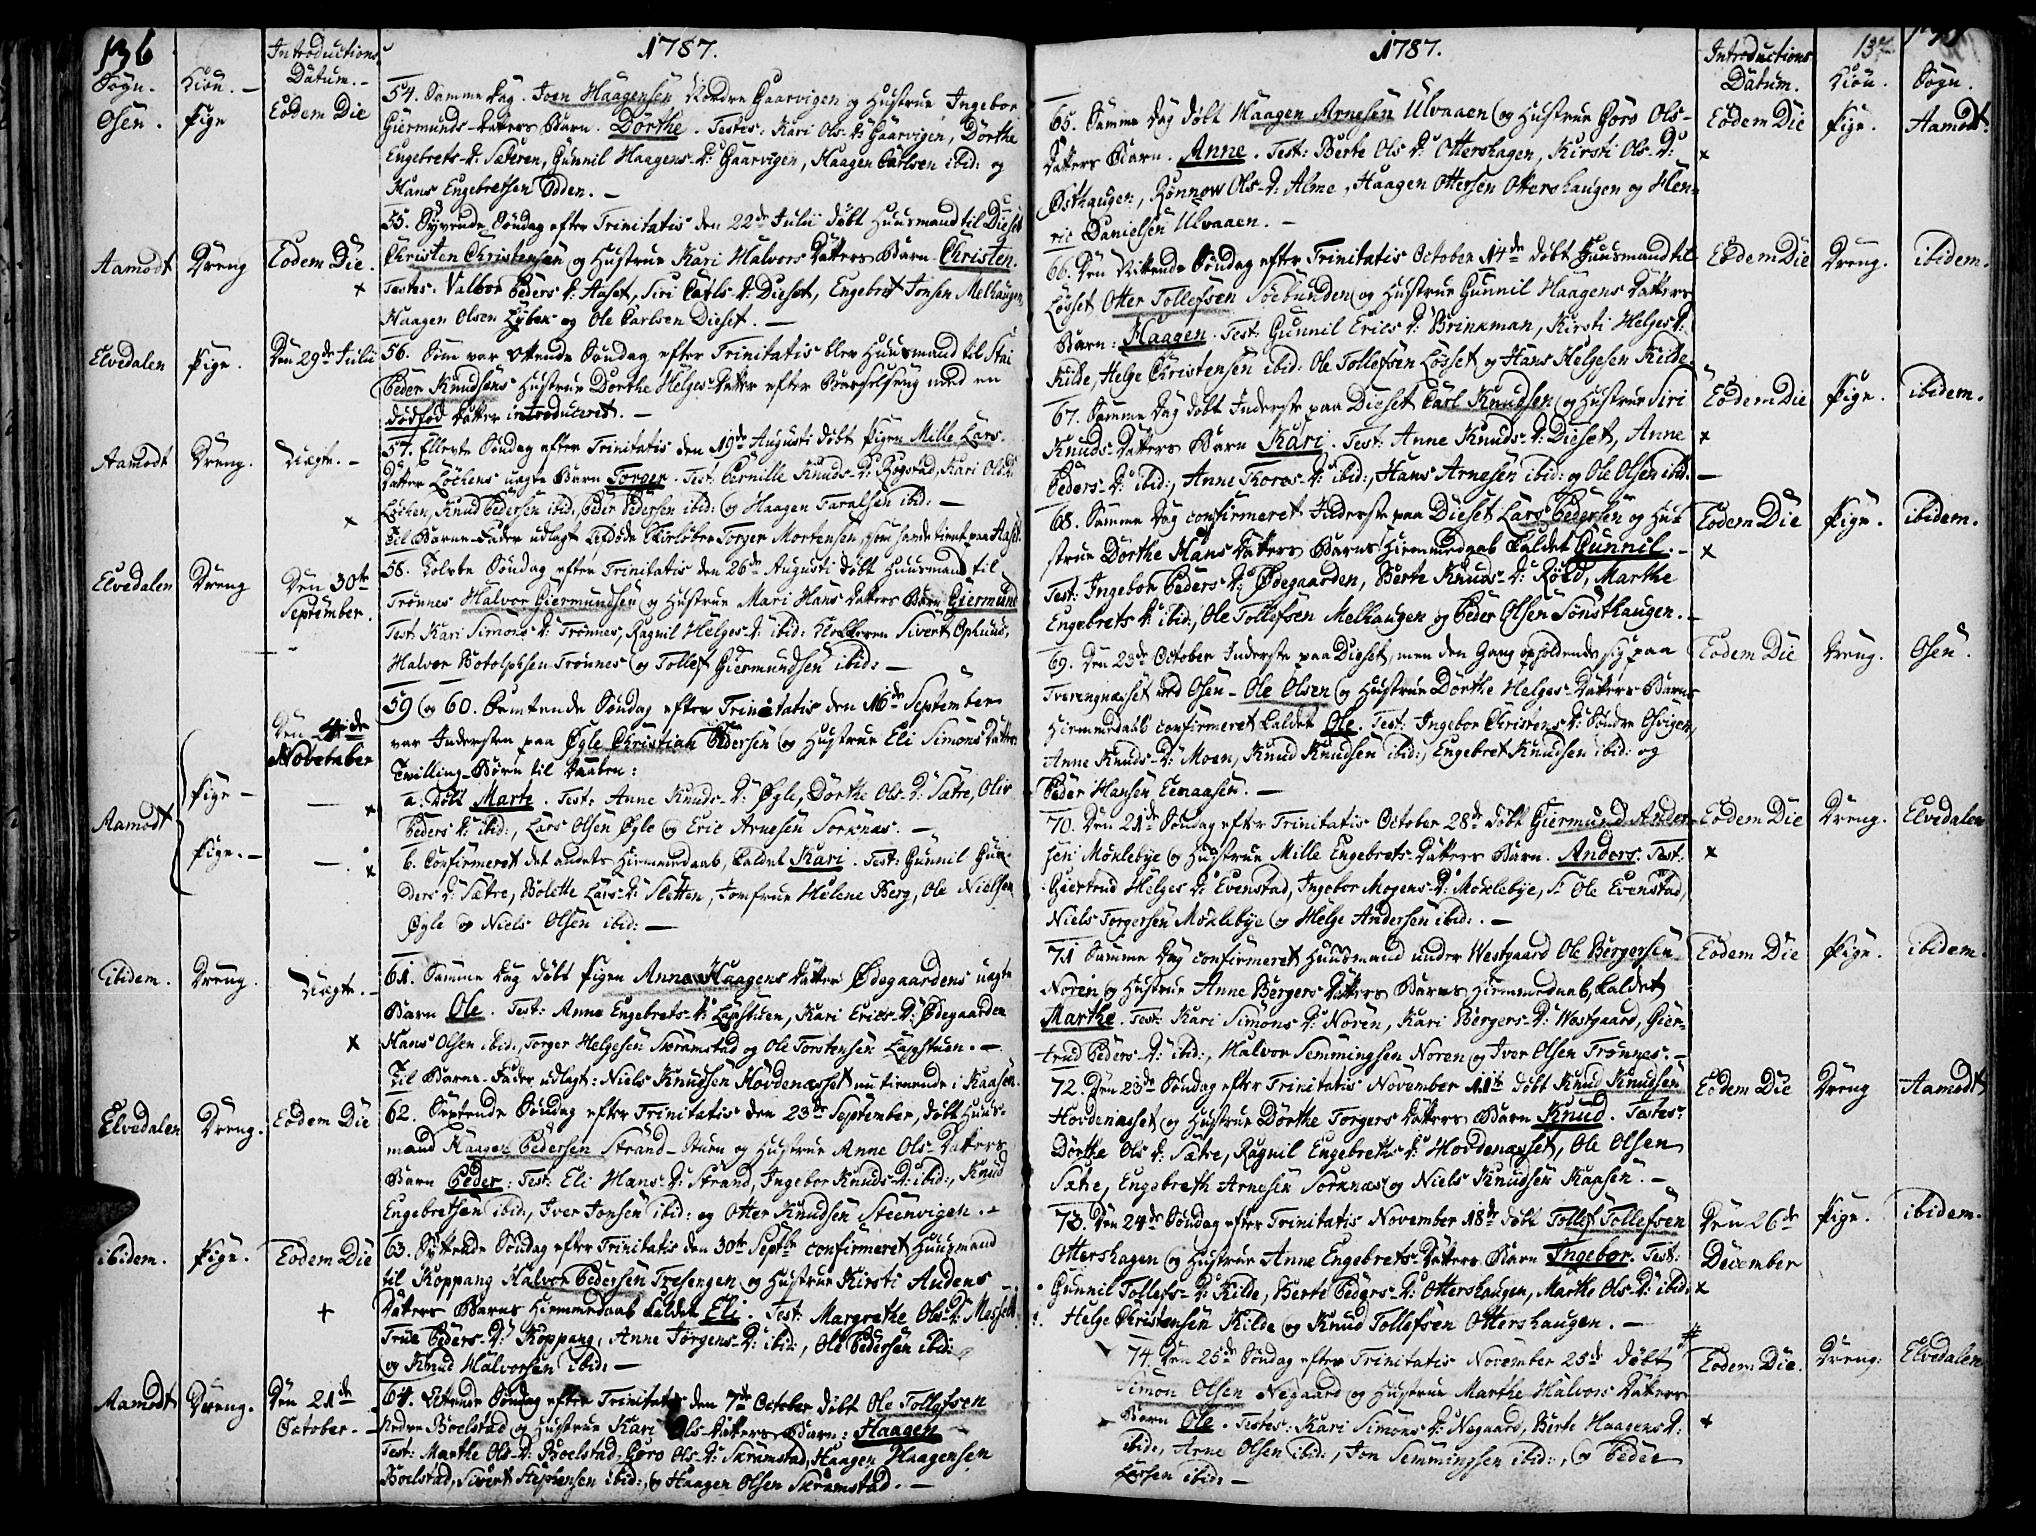 136
1787.
Sogn. Kiön. Introductions Datum.
Osen. Pige Eodem Die
54. Samme Dag. Joen Haagensen Nordre Gaarvigen og Hustrue Ingebor
Giermunds-Datters Barn. Dörthe. Testes: Kari Ols D: Gaarvigen, Dorthe
Engebrets-D: Sæteren, Gunnil Haagens-D: Gaarvigen, Haagen Carlsen ibid: og
Hans Engebretsen Odden.
Aamodt Dreng Eodem Die.
55. Syvende Söndag efter Trinitatis den 22de Julii döbt Huusmand til Dieset
Christen Christensen og Hustrue Kari Halvors Datters Barn Christen.
Testes: Valbor Peders D: Aaset, Siri Carls D: Dieset, Engebret Jonsen Melhaugen,
Haagen Olsen Lybek og Ole Carlsen Dieset.
Elvedalen Pige. Den 29de Julii
56. Som var ottende Söndag efter Trinitatis blev Huusmand til Stai
Peder Knudsens Hustrue Dorthe Helges Datter efter Barselseng med en
dödfød Datter introduceret.
Aamodt Dreng. Uægte.
57. Ellevte Söndag efter Trinitatis den 19de Augusti döbt Pigen Mille Lars
Datter Löckens uægte Barn Torger. Test: Pernille Knuds-D: Rogstad, Kari Ols D:
Löcken, Knud Pedersen ibid, Peder Pedersen ibid: og Haagen Taralsen ibid:
Til Barne-Fader udlagt Torger Mortensen
Elvedalen Dreng Den 30te September.
58. Tolvte Söndag efter Trinitatis den 26de Augusti döbt Huusmand til
Trönnes Halvor Giermundsen og Hustrue Mari Hans Datters Barn Giermund
Test: Kari Simons D: Trönnes, Ragnil Helges-D: ibid: Klokkeren Sivert Ophuus,
Halvor Botolphsen Trönnes og Tollef Giermundsen ibid:
Aamodt Den 4de November
59 og 60. Femtende Söndag efter Trinitatis den 16de September
var Indersten paa Øgle Christian Pedersen og Hustrue Eli Simons Datters
Twilling-Börn til Daaben:
Pige
a. döbt Marte. Test: Anne Knuds-D: Øgle, Dörthe Ols-D: Sætre, Oliv
Peders D: ibid:, Lars Olsen Øgle og Eric Arnesen Sorknæs.
Pige.
b. Confirmeret det andets Hiemmedaab, kaldet Kari. Test: Gunnil Gun-
ders D: Sætre, Bolette Lars-D: Sletten, Jomfrue Helene Berg, Ole Nielsen
Øgle og Niels Olsen ibid:
ibidem. Dreng. Uægte.
61. Samme Dag döbt Pigen Anna Haagens Datter Ødegaardens uægte
Barn Ole. Test: Anne Engebrets-D: Lapstuen, Kari Erics-D: Ødegaarden
Hans Olsen ibid:, Torger Helgesen Skramstad og Ole Torstensen Lapstuen.
Til Barne-Fader udlagt: Niels Knudsen Hovdenæsset nu tienende i Kaasen.
Elvedalen Dreng. Eodem Die
62. Sextende Söndag efter Trinitatis den 23de September, döbt Huus-
mand Haagen Pedersen Strand-Stuen og Hustrue Anne Ols-Datters
Barn Peder: Test: Eli Hans-D: Strand, Ingebor Knuds-D: ibid:, Knud
Engebretsen ibid:, Iver Jonsen ibid: og Otter Knudsen Steenvigen.
ibidem. Pige. Eodem Die
63. Syttende Söndag efter Trinitatis den 30te Septbr confirmeret Huusmand
til Koppang Halvor Pedersen Tresengen og Hustrue Kirsti Audens
Datters Barns Hiemmedaab kaldet Eli. Test: Margrethe Ols-D:
True Peders-D: Koppang, Anne Jörgens-D: ibid:, Ole Pedersen ibid:
og Knud Halvorsen ibid:
Aamodt Dreng. Den 21de October.
64. Attende Söndag efter Trinitatis den 7de October döbt Ole Tollefsen
Nedre Boelstad og Hustrue Kari Ols-Datters Barn: Haagen
Test: Marthe Ols-D: Boelstad, Goro Ols-D: Skramstad, Haagen Haagensen
Boelstad, Sivert Stephensen ibid:, og Haagen Olsen Skramstad.
1787.
137
Introductions Datum. Kiön. Sogn.
65. Samme Dag döbt Haagen Arnesen Ulvaaen og Hustrue Goro Ols-
Datters Barn. Anne. Test: Berte Ols D: Ottershagen, Kirsti Ols-D:
Østhaugen, Rönnow Ols-D: Alme, Haagen Ottersen Ottershaugen og Hen-
ric Danielsen Ulvaaen.
Eodem Die Pige. Aamodt.
66. Den Nittende Söndag efter Trinitatis October 14de döbt Huusmand til
Lösset Otter Tollefsen Söebunden og Hustrue Gunnil Haagens Datters
Barn: Haagen. Test: Gunnil Erics D: Brinkman, Kirsti Helges D:
Kilde, Helge Christensen ibid: Ole Tollefsen Lösset og Hans Helgesen Kilde.
Eodem Die Dreng. ibidem.
67. Samme Dag döbt Inderste paa Dieset Carl Knudsen og Hustrue Siri
Knuds-Datters Barn Kari. Test: Anne Knuds-D: Dieset, Anne
Peders-D: ibid:, Anne Thoras-D: ibid:, Hans Arnesen ibid: og Ole Olsen ibid:
Eodem Die Pige. ibidem.
68. Samme Dag confirmeret Inderste paa Dieset Lars Pedersen og Hu-
strue Dorthe Hans Datters Barns Hiemmedaab kaldet Gunnil.
Test: Ingebor Peders D: Ødegaarden, Berte Knuds-D: Röed, Marthe
Engebrets D: ibid:, Ole Tollefsen Melhaugen og Peder Olsen Sönsthaugen.
Eodem Die Pige. ibidem.
69. Den 23de October Inderste paa Dieset, men den Gang opholdende sig paa
Tverengnæsset ved Osen-Ole Olsen og Hustrue Dorthe Helges-Datters Barns
Hiemmedaab confirmeret kaldet Ole. Test: Ingebor Christens D: Söndre Osvigen,
Anne Knuds-D: Moen, Knud Knudsen ibid:, Engebret Knudsen ibid: og
Peder Hansen Eenaasen.
Eodem Die Dreng. Osen.
70. Den 21de Söndag efter Trinitatis October 28de döbt Giermund Ander-
sen Möklebye og Hustrue Mille Engebrets-Datters Barn. Anders. Test:
Giertrud Helges D: Evenstad, Ingebor Mogens-D: Möklebye, Ole Evenstad,
Niels Torgersen Möklebye og Helge Andersen ibid:.
Eodem Die Dreng. Elvedalen
71. Samme Dag confirmeret Huusmand under Westgaard Ole Bergersen
Noren og Hustrue Anne Bergers Datters Barns Hiemmedaab, kaldet
Marthe. Test: Kari Simons D: Noren, Kari Bergers-D: Westgaard, Gier-
trud Peders-D: ibid:, Halvor Semmingsen Noren og Iver Olsen Trönnes.
Eodem Die Pige. ibidem.
72. Den 23de Söndag efter Trinitatis November 11te döbt Knud Knudsen
Hovdenæsset og Hustrue Dörthe Torgers Datters Barn Knud. Testes:
Dörthe Ols D: Sætre, Ragnil Engebreths D: Hovdenæsset, Ole Olsen
Sætre, Engebreth Arnesen Sorknæs og Niels Knudsen Kaasen.
Eodem Die Dreng Aamodt
73. Den 24de Söndag efter Trinitatis November 18de döbt Tollef Tollefsen
Ottershagen og Hustrue Anne Engebrets-Datters Barn Ingebor. Test:
Gunnil Tollefs-D: Kilde, Berte Peders-D: Ottershaugen, Marthe Ols-D: ibid:
Helge Christensen Kilde og Knud Tollefsen Ottershaugen.
Den 26de December Pige. ibidem.
74. Den 25de Söndag efter Trinitatis November 25de döbt
Simon Olsen Negaard og Hustrue Marthe Halvors Datters
Barn Ole. Testes: Kari Simons D: Negaard, Berte Haagens D:
ibid:, Arne Olsen ibid:, Jon Semmingsen ibid:, og Peder
Larsen ibid:
Eodem Die. Dreng. Elvedalen